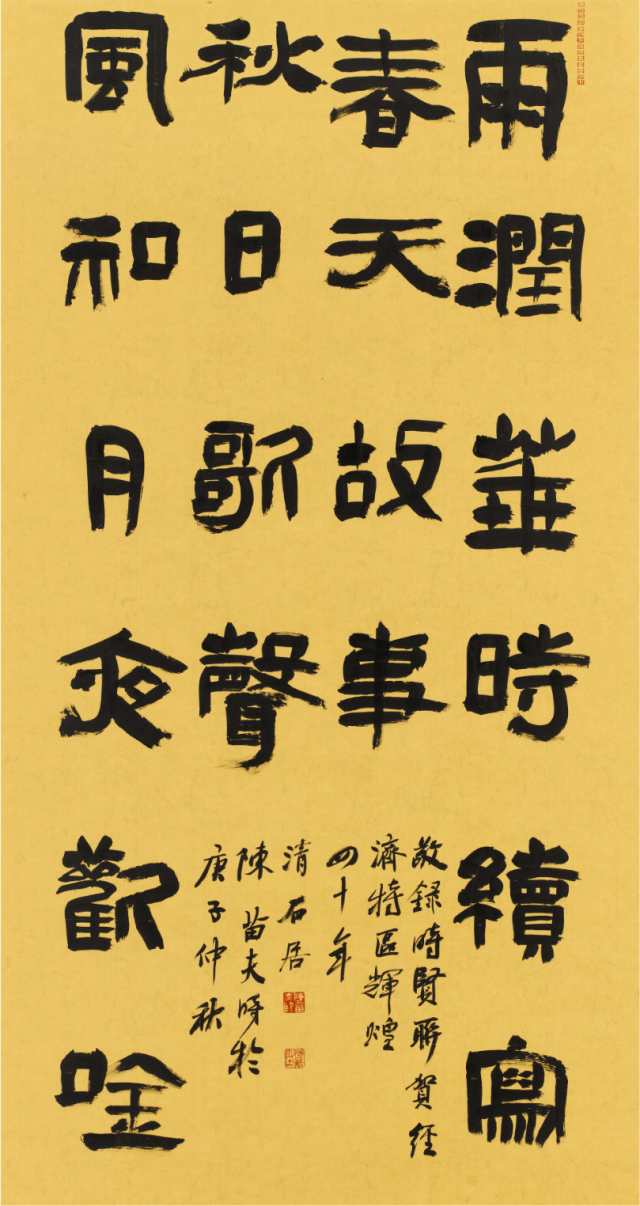 雨潤華時續寫
春天故事
敬録時賢聯賀經
濟特區輝煌
四十年
風和月夜歡唫
秋日歌聲
庚子仲秋
陳苗夫時於
清石居